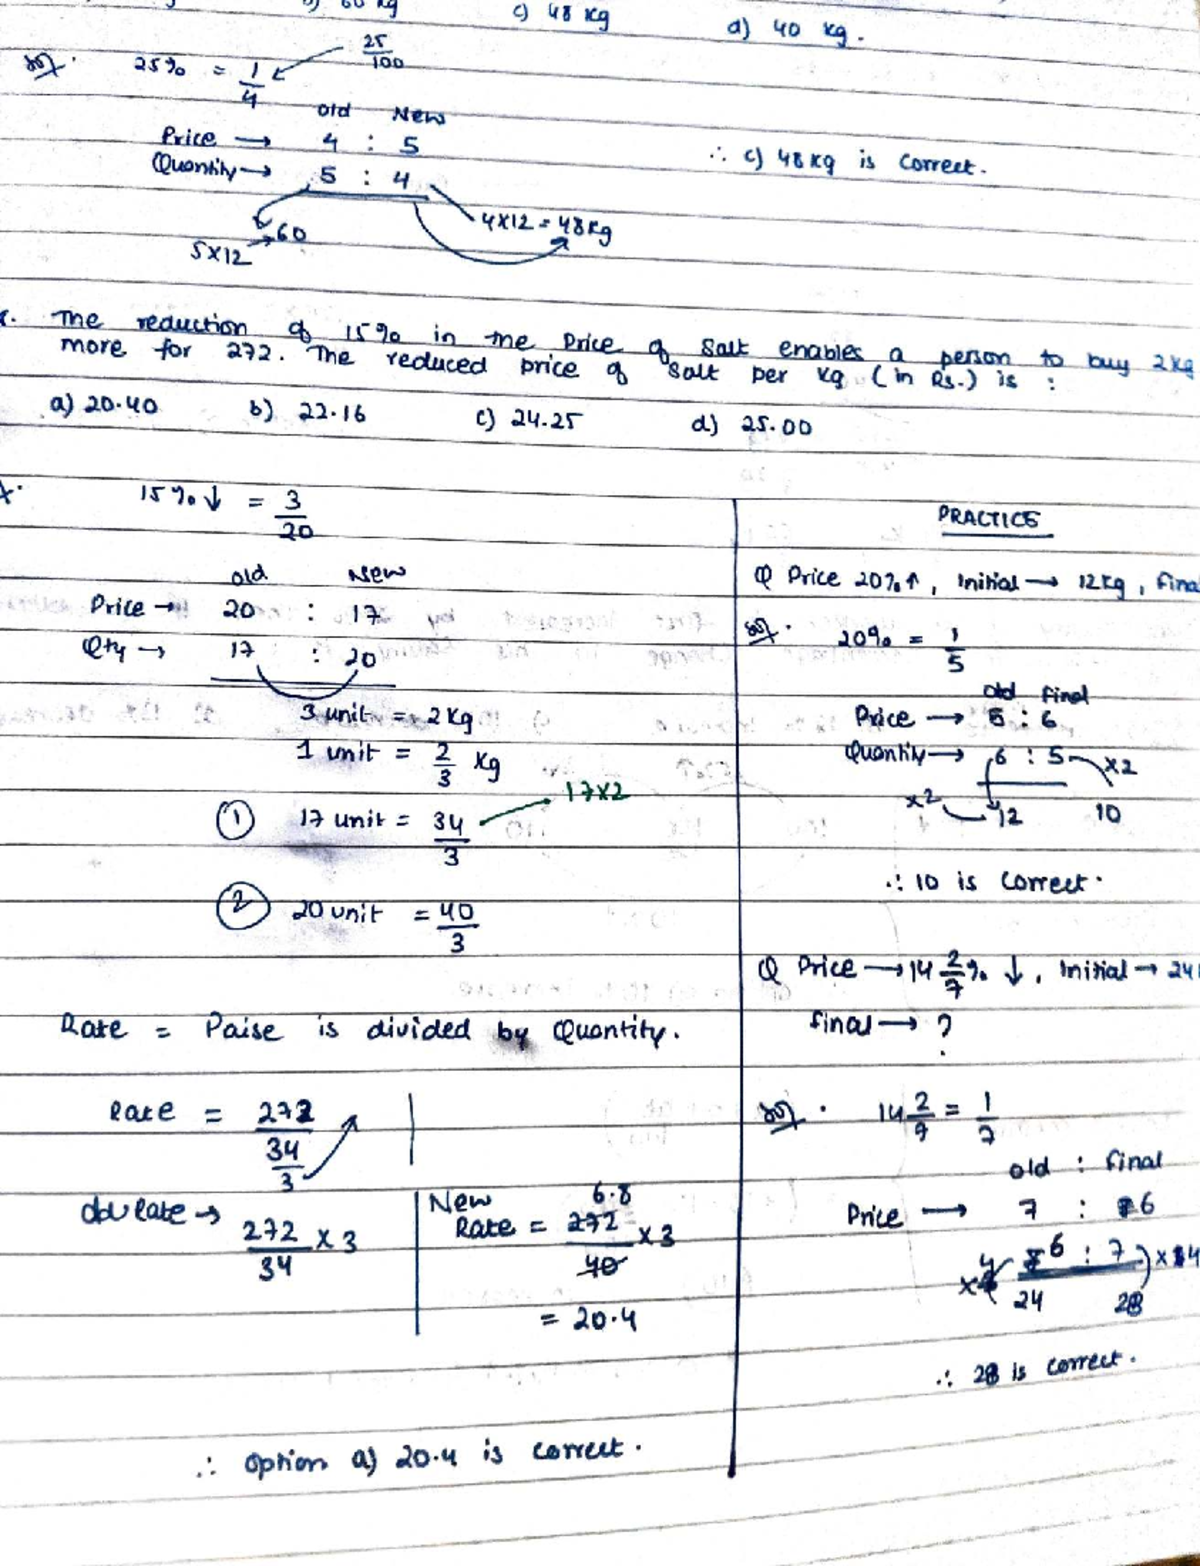 b) 60 kg c) 48 kg d) 40 kg.
Sol. 25% = 1/4 25/100
Old New
Price → 4 : 5
Quantity → 5 : 4
∴ c) 48 kg is correct.
60 4×12 = 48kg
5×12
The reduction of 15% in the price of salt enables a person to buy 2kg
more for 272. The reduced price of salt per kg (in Rs.) is :
a) 20.40 b) 22.16 c) 24.25 d) 25.00
15%↓ = 3/20
old New
Price → 20 : 17
Qty → 17 : 20
3 unit = 2kg
1 unit = 2/3 kg
① 17 unit = 34/3 17×2
② 20 unit = 40/3
Rate = Paise is divided by Quantity.
Rate = 272/34/3
old rate → 272/34 × 3
New
Rate = 272/40 × 3 6.8
= 20.4
∴ option a) 20.4 is correct.
PRACTICE
Q Price 20%↑, Initial → 12kg, Fina
Sol. 20% = 1/5
old final
Price → 5 : 6
Quantity → 6 : 5 ×2
×2 12 10
∴ 10 is correct.
Q Price → 14 2/7% ↓, Initial → 24
final → ?
Sol. 14 2/7 = 1/7
old : final
Price → 7 : 6
×4 6 : 7 ×4
24 28
∴ 28 is correct.